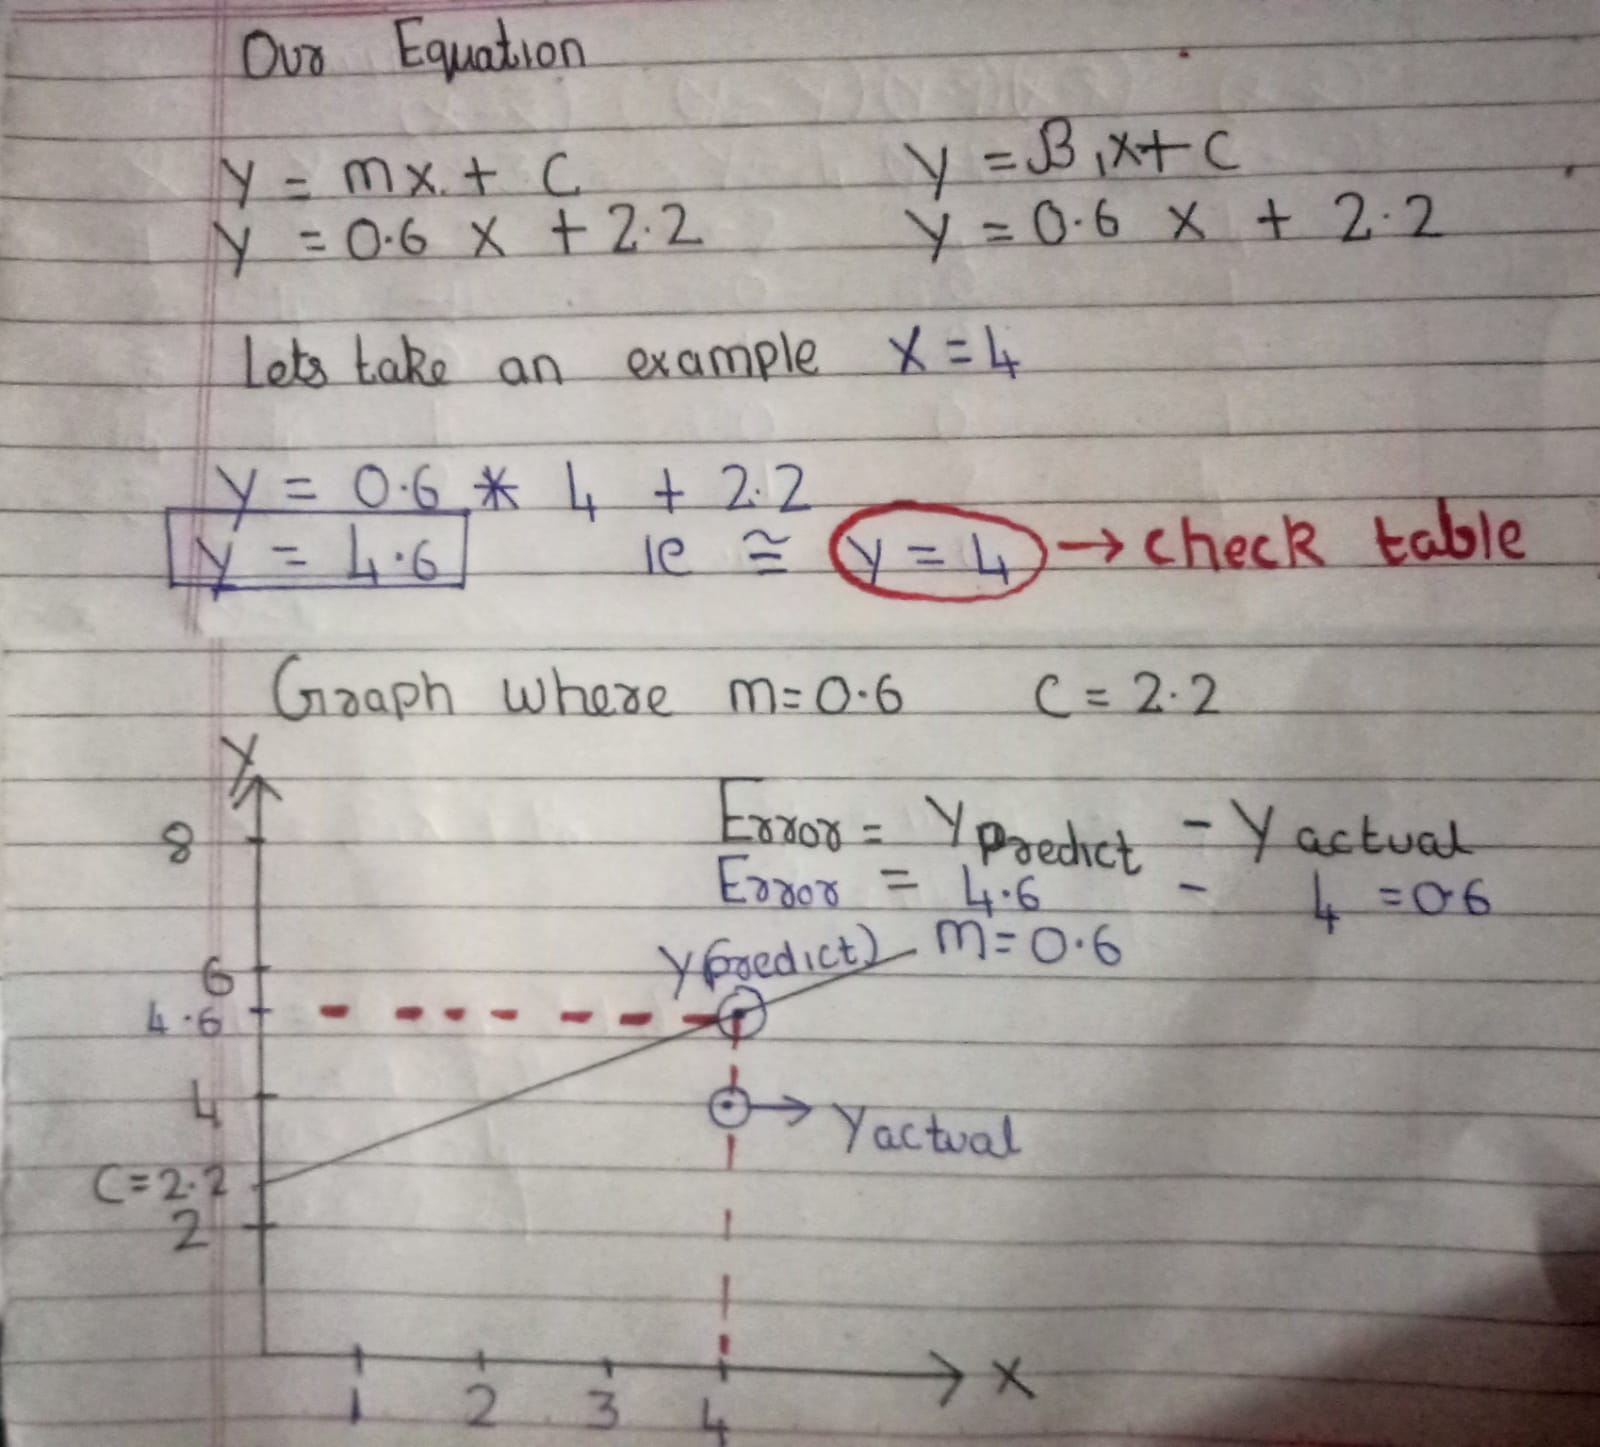 Our Equation
y = mx + C y = β₁x + C
y = 0.6 x + 2.2 y = 0.6 x + 2.2
Lets take an example x = 4
y = 0.6 * 4 + 2.2
y = 4.6 ie ≅ y = 4 → check table
Graph where m = 0.6 C = 2.2
Y
Error = Y predict - Y actual
8
Error = 4.6 - 4 = 0.6
y(predict) m = 0.6
6
4.6
4
Y actual
C = 2.2
2
X
1 2 3 4